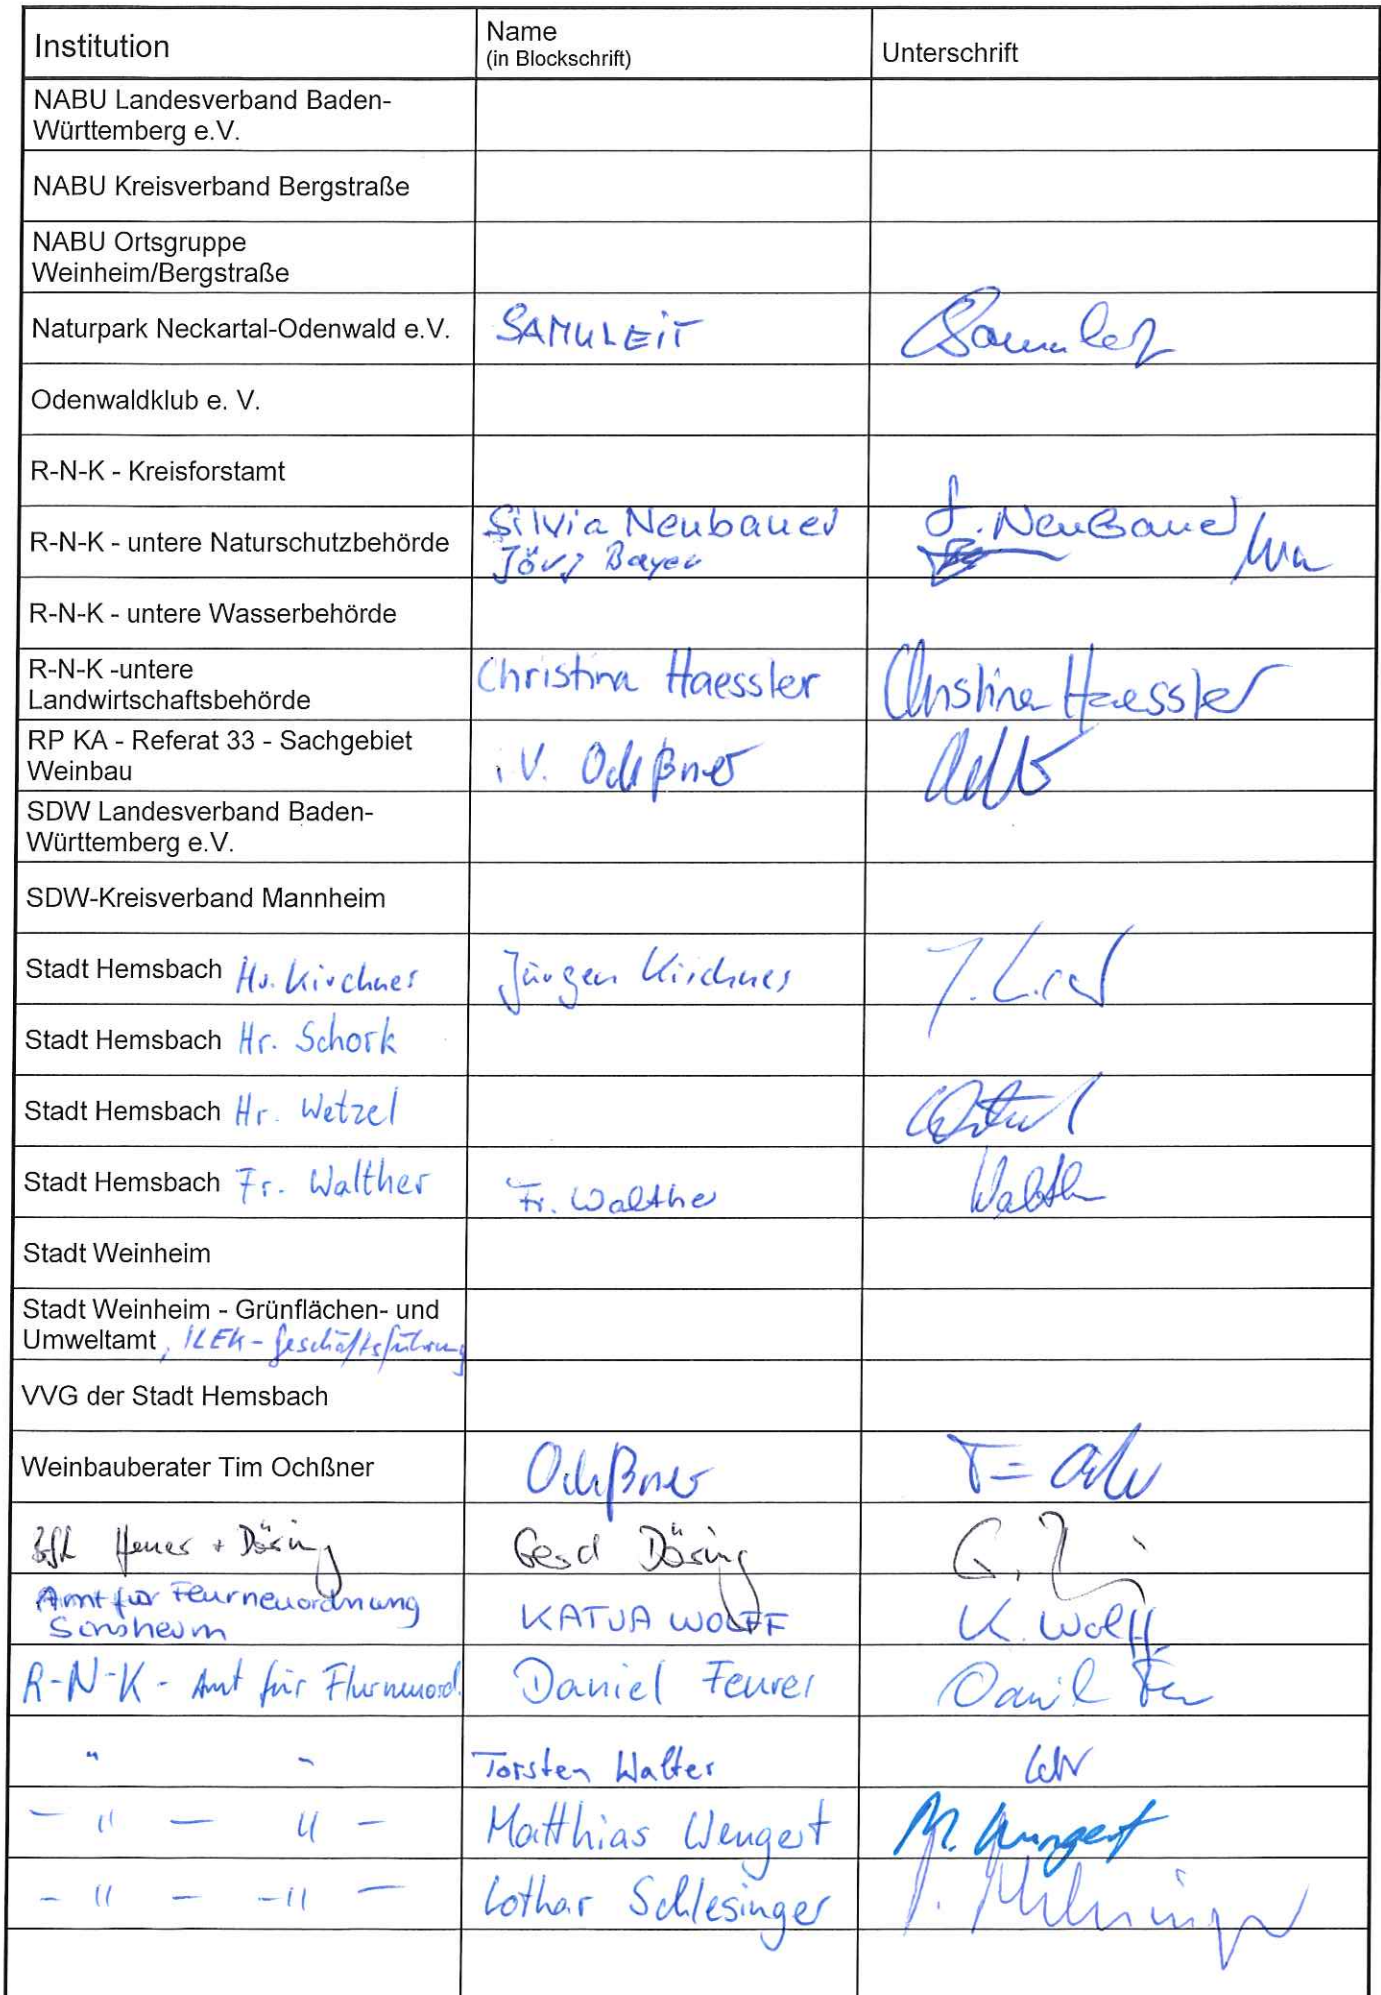 Institution Name Unterschrift
(in Blockschrift)
NABU Landesverband Baden-
Württemberg e.V.
NABU Kreisverband Bergstraße
NABU Ortsgruppe
Weinheim/Bergstraße
Naturpark Neckartal-Odenwald e.V. SAMULEIT
Odenwaldklub e. V.
R-N-K - Kreisforstamt
R-N-K - untere Naturschutzbehörde Silvia Neubauer S. Neubauer
Jörg Bayer
R-N-K - untere Wasserbehörde
R-N-K -untere
Landwirtschaftsbehörde Christina Haessler Christina Haessler
RP KA - Referat 33 - Sachgebiet
Weinbau i.V. Ochßner
SDW Landesverband Baden-
Württemberg e.V.
SDW-Kreisverband Mannheim
Stadt Hemsbach Hr. Kirchner Jürgen Kirchner
Stadt Hemsbach Hr. Schork
Stadt Hemsbach Hr. Wetzel
Stadt Hemsbach Fr. Walther Fr. Walther
Stadt Weinheim
Stadt Weinheim - Grünflächen- und
Umweltamt, ILEK-Geschäftsführung
VVG der Stadt Hemsbach
Weinbauberater Tim Ochßner Ochßner
+ Döring Gerd Döring
Amt für Flurneuordnung
Sinsheim KATJA WOLFF K. Wolff
R-N-K - Amt für Flurneuord. Daniel Feurer
" " Torsten Walter
- " - " - Matthias Wengert M. Wengert
- " - - " - Lothar Schlesinger